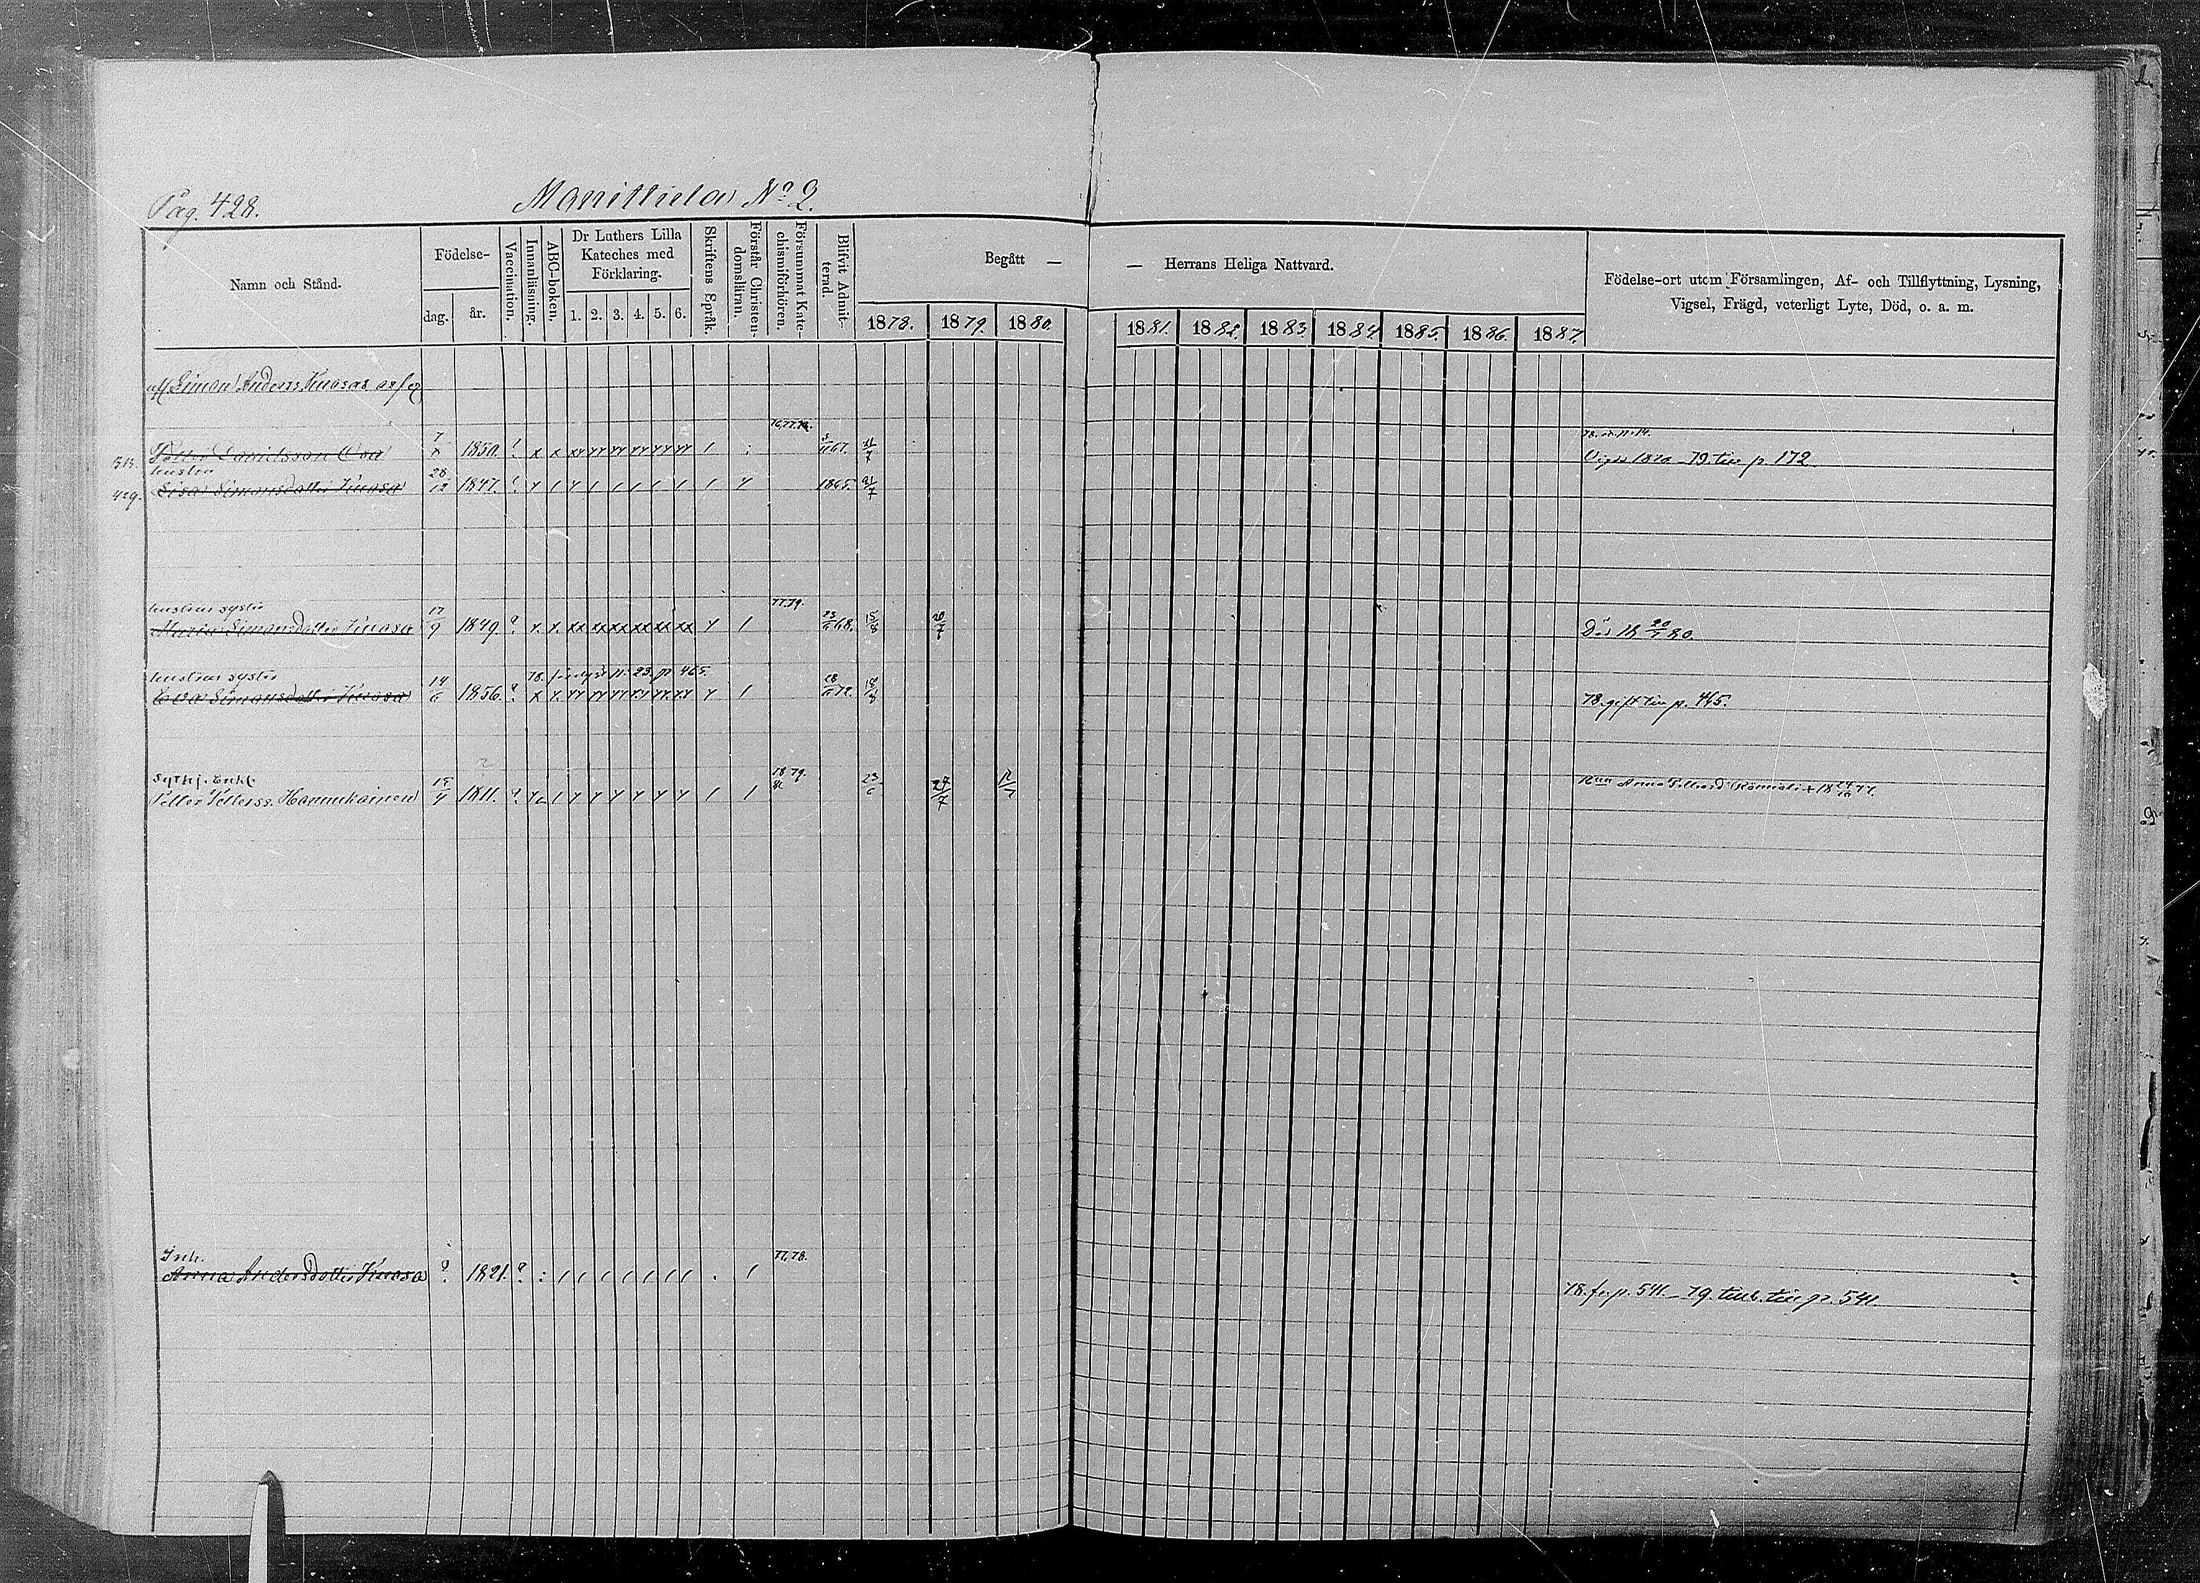 Pag. 428.
Manittiela No 2.
Namn och Stånd.
Födelse-
dag.
år.
Vaccination.
Innanläsning.
ABC-boken.
Dr Luthers Lilla
Kateches med
Förklaring.
1. 2. 3. 4. 5. 6.
Skriftens Språk.
Förstår Christen-
domsläran.
Försummat Kate-
chismiförhören.
Blifvit Admit-
terad.
Begått — — Herrans Heliga Nattvard.
1878. 1879. 1880. 1881. 1882. 1883. 1884. 1885. 1886. 1887.
Födelse-ort utom Församlingen, Af- och Tillflyttning, Lysning,
Vigsel, Frägd, veterligt Lyte, Död, o. a. m.
Simon Anderss. Kuosas
513. Petter Danielsson 7 1850. 67. 21/7 79. till p. 172.
hustru
429. Lisa Simonsdotter Kuosa 28/12 1847. ? 1865. 21/7
hustrus syster
Maria Simonsdotter Kuosa 17/9 1849. ? 77.79. 68. Död 18 80.
hustrus syster
Eva Simonsdotter Kuosa 14/6 1856. ? p. 465. 72. 78. gift till p. 465.
Petter Petterss. Hannukainen 1811. ? 78 79. 23/6 27/7 Anna
Inh.
Anna Andersdotter Kuosa ? 1821. ? 77,78. 78. fr. p. 541. 79. till p. 541.